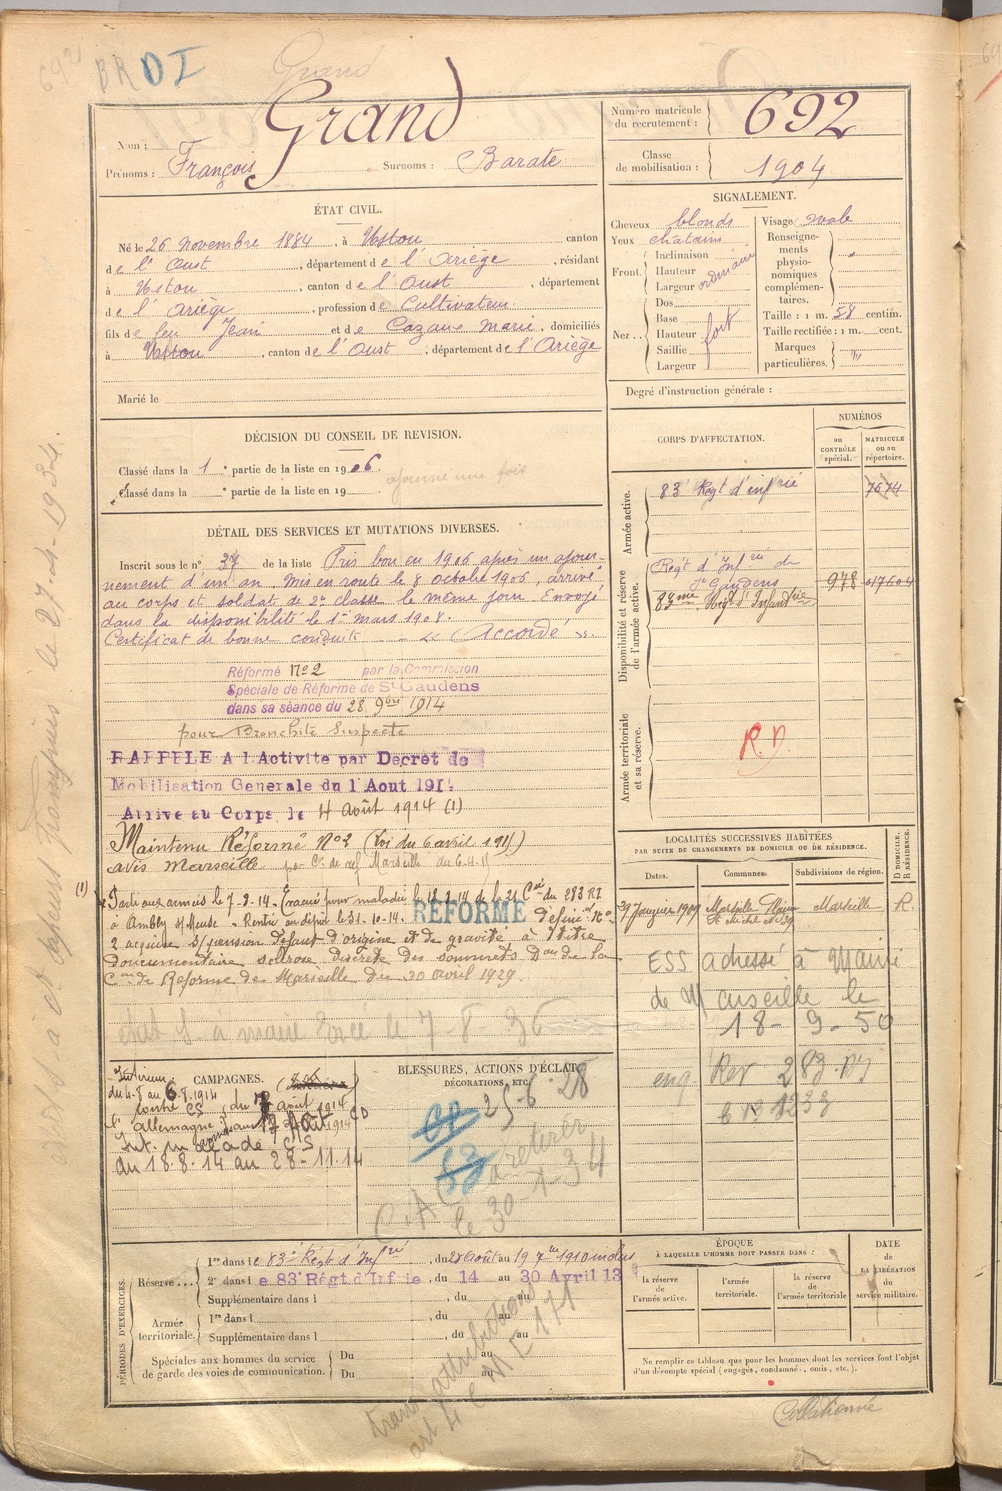 692
BRDI
Grand
Nom : Grand
Prénoms : François Surnoms : Barate
Numéro matricule du recrutement : 692
Classe de mobilisation : 1904
ÉTAT CIVIL.
Né le 26 novembre 1884, à Ustou canton
de l'Oust, département de l'Ariège, résidant
à Ustou, canton de l'Oust, département
de l'Ariège, profession de Cultivateur
fils de feu Jean et de Cazaux Marie, domiciliés
à Ustou, canton de l'Oust, département de l'Ariège
Marié le
SIGNALEMENT.
Cheveux blonds
Yeux chatains
Front. Inclinaison Hauteur Largeur ordinaire
Nez .. Dos Base Hauteur Saillie Largeur fort
Visage ovale
Renseignements physionomiques complémentaires.
Taille : 1 m. 58 centim.
Taille rectifiée : 1 m. cent.
Marques particulières.
Degré d'instruction générale :
DÉCISION DU CONSEIL DE REVISION.
Classé dans la 1e partie de la liste en 1906.
ajourné une fois
Classé dans la e partie de la liste en 19
DÉTAIL DES SERVICES ET MUTATIONS DIVERSES.
Inscrit sous le n° 37 de la liste Pris bon en 1906 après un ajour-
nement d'un an. Mis en route le 8 octobre 1906, arrivé
au corps et soldat de 2e classe le même jour. Envoyé
dans la disponibilité le 1er mars 1908.
Certificat de bonne conduite Accordé
Réformé N° 2 par la Commission
Spéciale de Réforme de St Gaudens
dans sa séance du 28 9bre 1914
pour Bronchite Suspecte
RAPPELÉ A l'Activité par Décret de
Mobilisation Générale du 1 Aout 1914
Arrivé au Corps le 4 Août 1914 (1)
Maintenu Réformé N° 2 (Loi du 6 avril 1915)
avis Marseille
(1) Parti aux armées le 7-8-14. Evacué pour maladie le 18-8-14 de la 21 Cie du 283 RI
à Ambly s/Meuse. Rentré au dépôt le 31-10-14. RÉFORMÉ définitif N°
2 acquise s/pension défaut d'origine et de gravité à titre
documentaire sclérose discrète des sommets Don de la
Con de Réforme de Marseille du 30 avril 1929.
état S à mairie Envoi le 7-8-36
CORPS D'AFFECTATION.
NUMÉROS
au CONTRÔLE spécial.
MATRICULE ou au répertoire.
Armée active.
83e Régt d'infrie 7674
Disponibilité et réserve de l'armée active.
Régt d'Infie de St Gaudens 978 017604
83me Régt d'Infanterie
Armée territoriale et sa réserve.
R.D.
LOCALITÉS SUCCESSIVES HABITÉES
PAR SUITE DE CHANGEMENTS DE DOMICILE OU DE RÉSIDENCE.
Dates. Communes. Subdivisions de région. D DOMICILE. R RÉSIDENCE.
29 Janvier 1909 Marseille Marseille R.
ESS adressé à Mairie
de Marseille le
18-9-50
CAMPAGNES.
Intérieur
du 4-8 au 6.8.1914
contre
l'allemagne
Int. malade CS
du 18.8.14 au 28-11-14
BLESSURES, ACTIONS D'ÉCLAT,
DÉCORATIONS, ETC.
25-6-28
à retirer
le 30-1-34
PÉRIODES D'EXERCICES.
Réserve ... 1re dans le 83e Régt d'Infrie, du 28 Août au 19 7bre 1910 inclus
2e dans le 83e Régt d'Infrie, du 14 au 30 Avril 13
Supplémentaire dans l , du au
Armée territoriale. 1re dans l , du au
Supplémentaire dans l , du au
Spéciales aux hommes du service de garde des voies de communication. Du au
Du au
ÉPOQUE
À LAQUELLE L'HOMME DOIT PASSER DANS :
la réserve de l'armée active. l'armée territoriale. la réserve de l'armée territoriale
DATE de LA LIBÉRATION du service militaire.
Ne remplir ce tableau que pour les hommes dont les services font l'objet
d'un décompte spécial (engagés, condamnés, omis, etc.).
Collationné